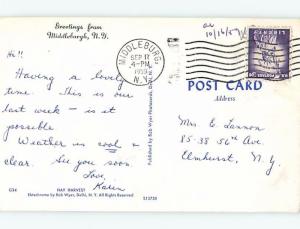 Greetings from
Middleburgh, N.Y.
Hi!!
Having a lovely
time. This is our
last week – is it
possible
Weather is cool &
clear. See you soon.
Love,
Karen
G34
HAY HARVEST
Ektachrome by Bob Wyer, Delhi, N. Y. All Rights Reserved
Published by Bob Wyer Photocards, Delhi, N. Y.
MIDDLEBURG,
SEP 11
4-PM
1959
N.Y.
10/16/59
LIBERTY
POST CARD
Address
Mrs. E. Lannon
85-38 56th Ave
Elmhurst, N.Y.
S13730